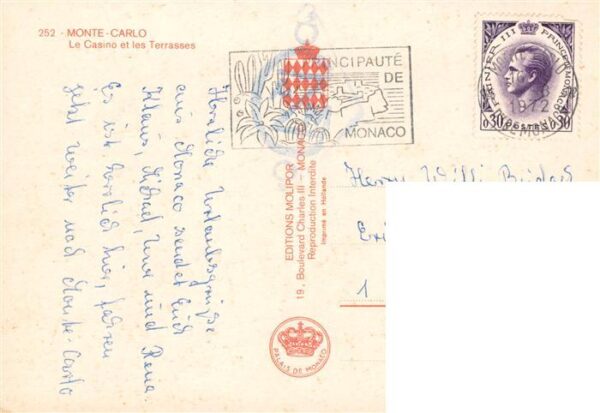 252 - MONTE-CARLO
Le Casino et les Terrasses
PRINCIPAUTÉ
DE
MONACO
RAINIER III PRINCE DE MONACO
1972
0,30 POSTES 0,30
Herzliche Urlaubsgrüsse
aus Monaco sendet Euch
Klaus, Michael, und Rena.
Es ist herrlich hier, fahren
jetzt weiter nach Monte-Carlo
EDITIONS MOLIPOR
19, Boulevard Charles III - MONACO
Reproduction Interdite
Imprimé en Hollande
PALAIS DE MONACO
Herrn Willi
1